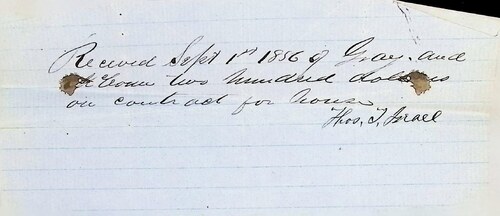 Received Sept 1st 1856 of Gray and
two hundred dollars
on contract for house
Thos. T. Israel